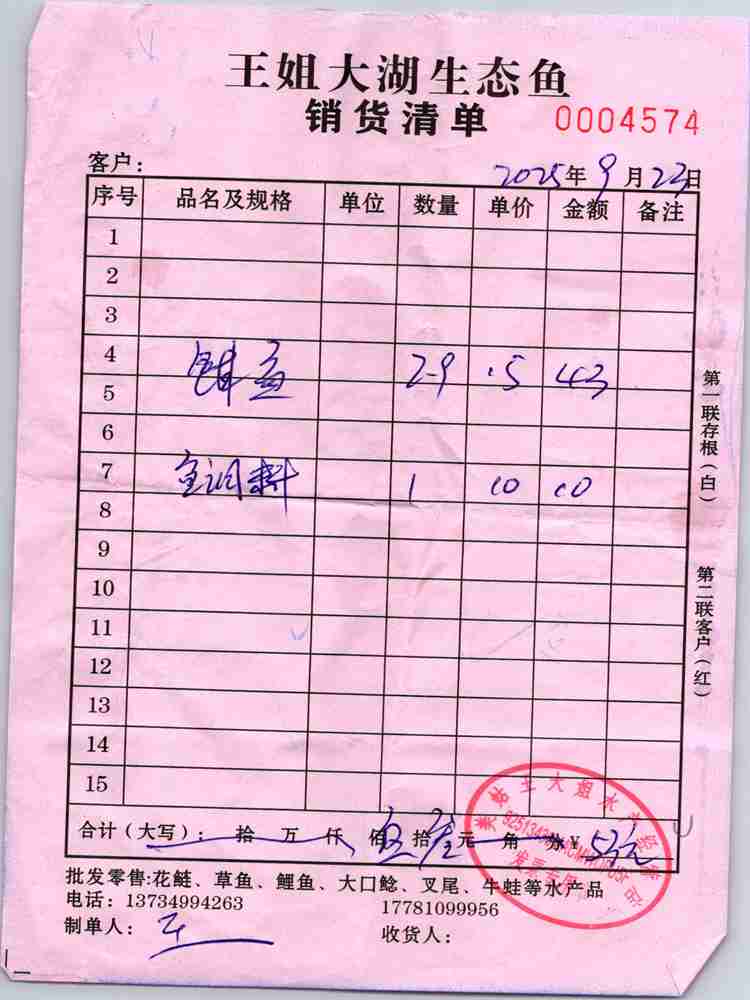 王姐大湖生态鱼
销货清单 0004574
客户： 2025年9月22日
序号 品名及规格 单位 数量 单价 金额 备注
1
2
3
4 2-9 15 43
5
6
7 鱼调料 1 10 10
8
9
10
11
12
13
14
15
合计（大写）： 拾 万 仟 佰 伍 拾 叁 元 角 分 ¥ 53元
批发零售:花鲢、草鱼、鲤鱼、大口鲶、叉尾、牛蛙等水产品
电话：13734994263 17781099956
制单人： 王 收货人：
第一联存根（白）
第二联客户（红）
发票专用